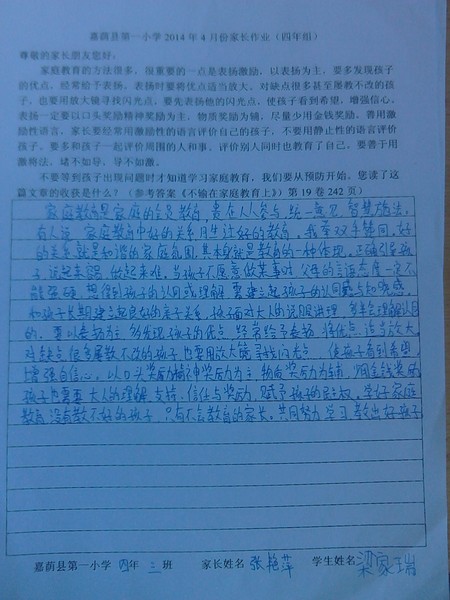 嘉荫县第一小学2014年4月份家长作业（四年组）
尊敬的家长朋友您好，
家庭教育的方法很多，很重要的一点是表扬激励，以表扬为主，要多发现孩子
的优点，经常给予表扬，表扬时要将优点适当放大，对缺点很多甚至屡教不改的孩
子，也要用放大镜寻找闪光点，要先表扬他的闪光点，使孩子看到希望，增强信心，
表扬一定要以口头奖励精神奖励为主，物质奖励为辅，尽量少用金钱奖励。善用激
励性语言，家长要经常用激励性的语言评价自己的孩子，不要用静止性的语言评价
孩子，要多和孩子一起评价周围的人和事，评价别人同时也教育了自己，要善于用
激将法，堵不如导，导不如激。
不要等到孩子出现问题时才知道学习家庭教育，我们要从预防开始。您读了这
篇文章的收获是什么？（参考答案《不输在家庭教育上》第19卷242页）
家庭教育是家庭的全员教育，贵在人人参与，统一意见，智慧施法。
有人说，家庭教育中好的关系用生许好的教育，我举双手赞同，好
的关系就是和谐的家庭氛围，其本身就是教育的一种体现。正确引导孩
子说起来容易，做起来难，当孩子不愿意做某事时，父母的言语态度一定不
能强硬，想得到孩子的认同或理解，需建立起孩子的认同感与知感，
和孩子长期建立起良好的亲子关系，孩子面对大人的说服讲理，多半会理解认同
的。要以表扬为主，多发现孩子的优点，经常给予表扬，将优点适当放大，
对缺点很多屡教不改的孩子，也要用放大镜寻找闪光点，使孩子看到希望，
增强自信心。以口头奖励精神奖励为主，物质奖励为辅，少用金钱奖励
孩子也需要大人的理解、支持、信任与奖励，赋予孩子的民主权。学好家庭
教育，没有教不好的孩子，只有不会教育的家长。共同努力学习，教出好孩子
嘉荫县第一小学 四年 三 班 家长姓名 张艳萍 学生姓名 梁家瑞